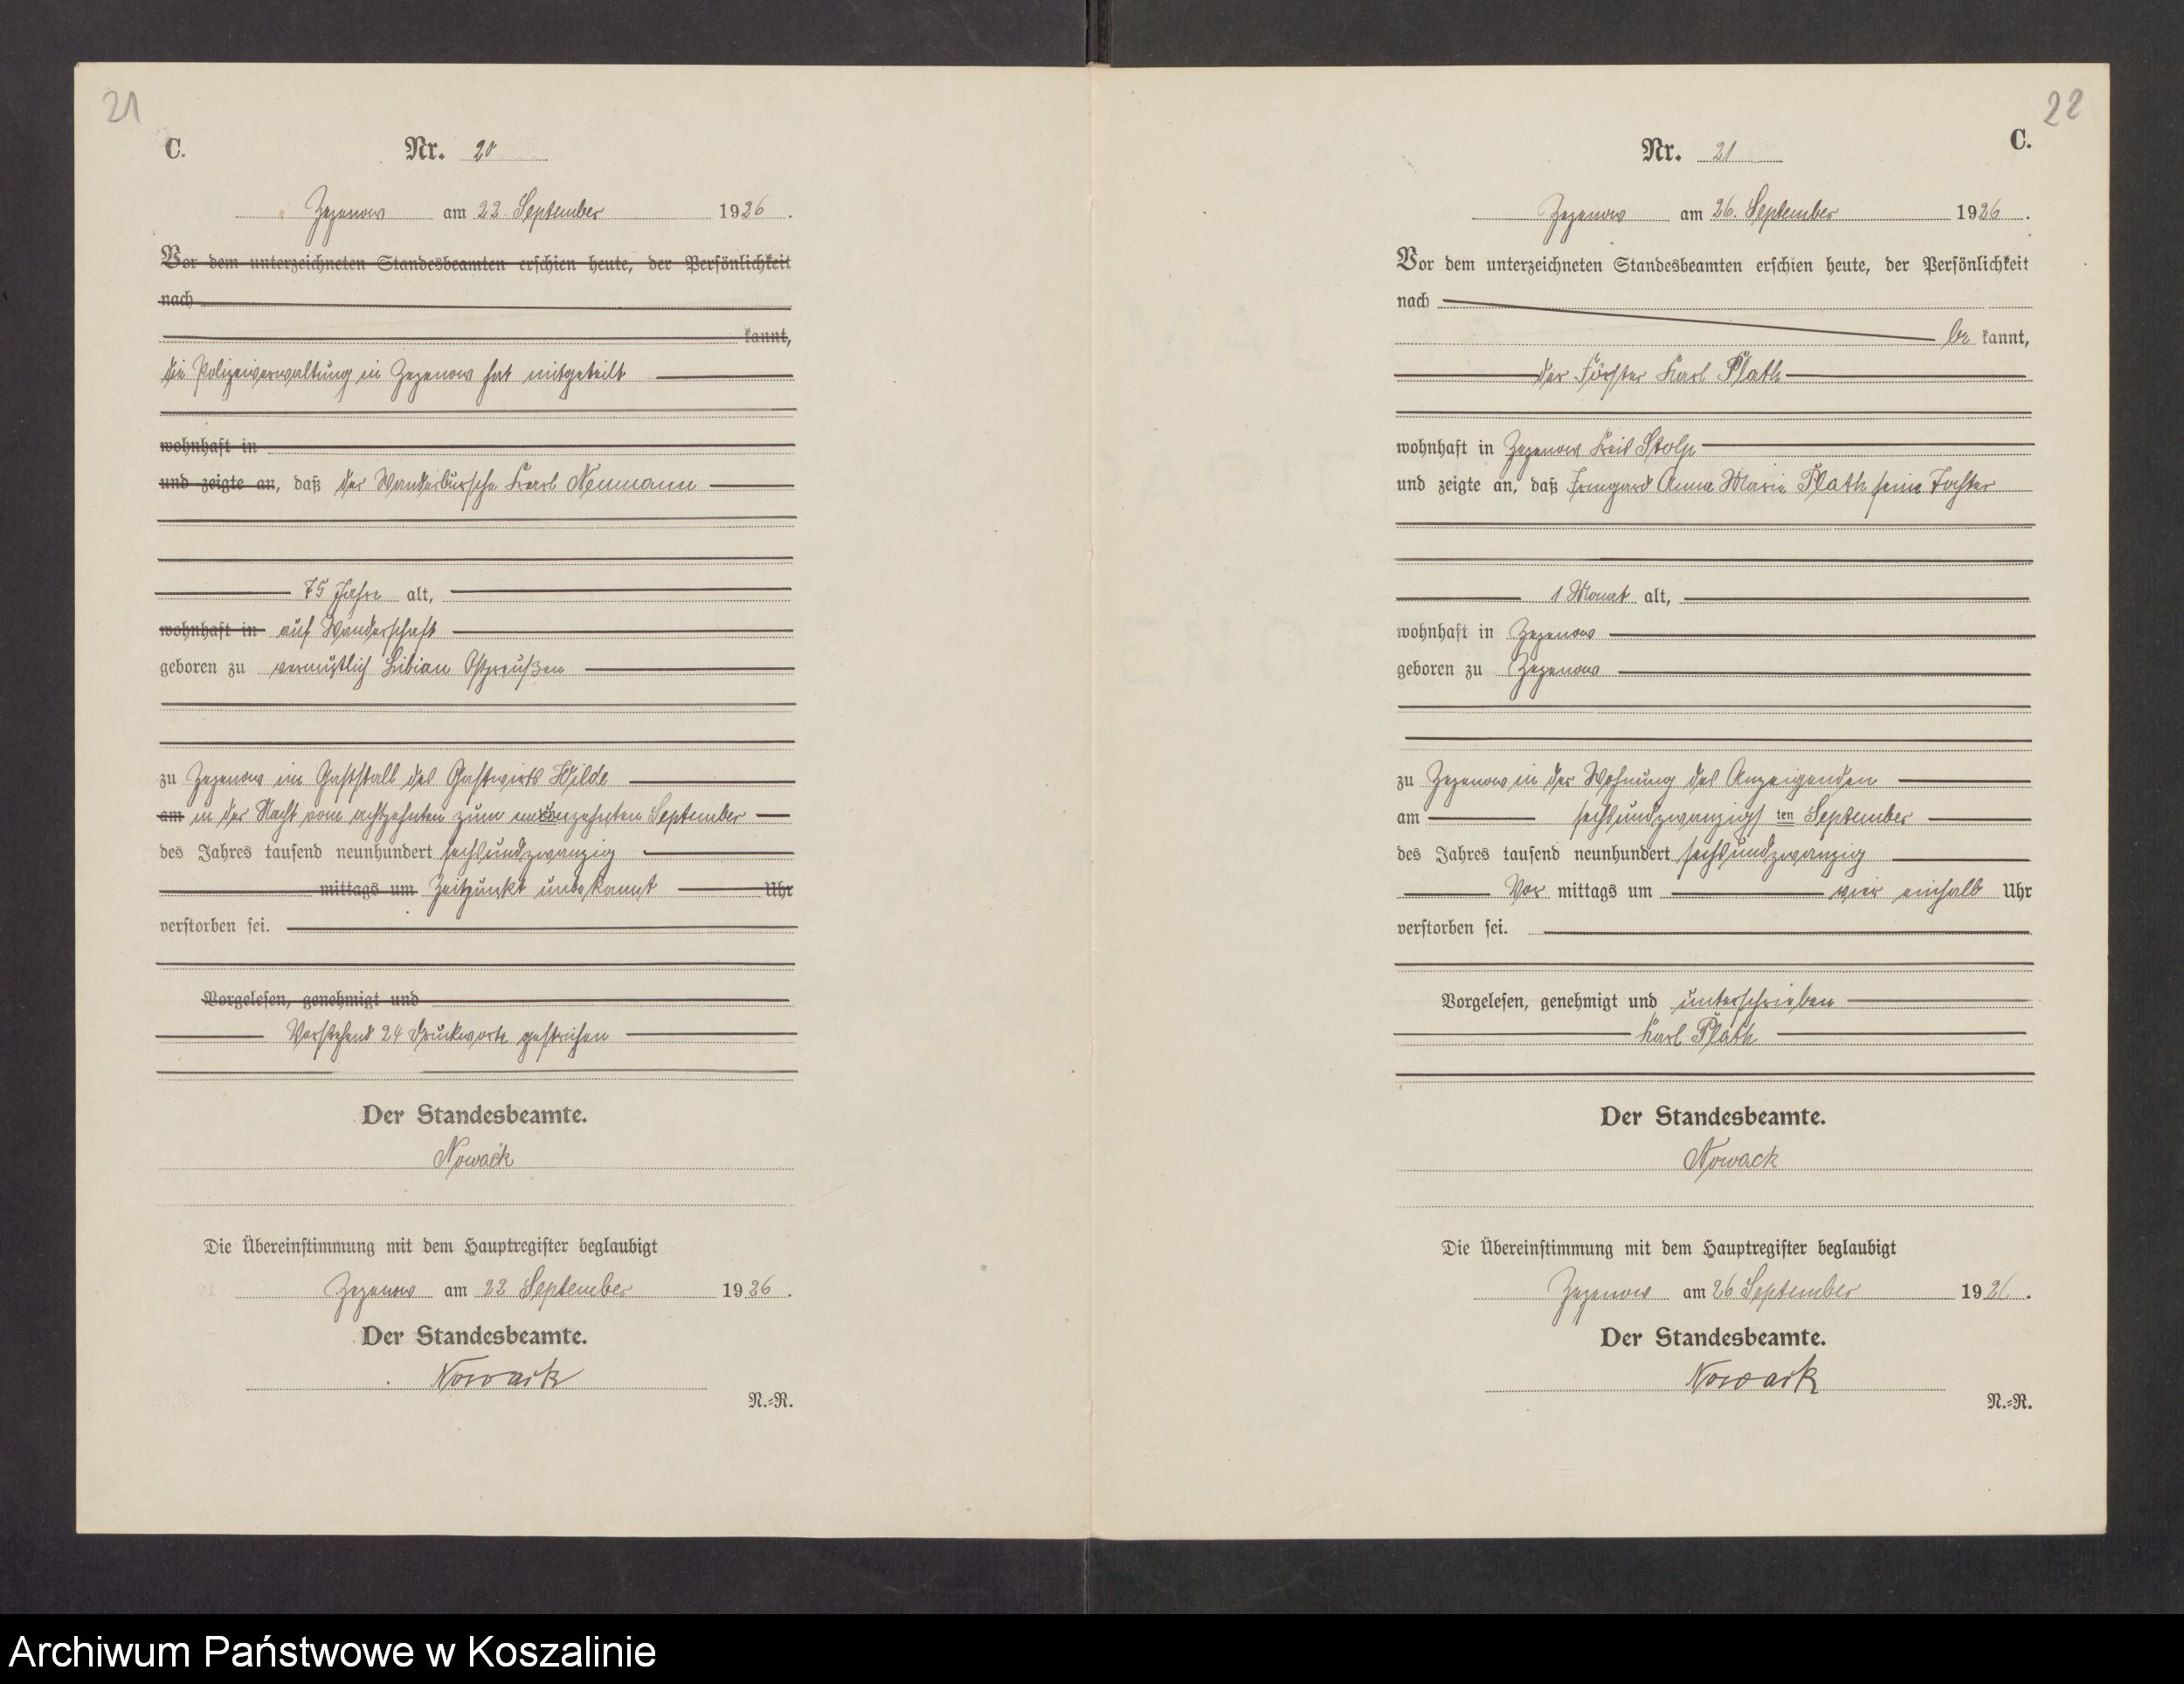 21
C.
Nr. 20
Zezenow am 22. September 1926.
Vor dem unterzeichneten Standesbeamten erschien heute, der Persönlichkeit
nach
kannt,
die Polizeiverwaltung in Zezenow hat mitgeteilt
wohnhaft in
und zeigte an, daß der Wanderbursche Karl Neumann
75 Jahre alt,
wohnhaft in auf Wanderschaft
geboren zu vermutlich Libian Ostpreußen
zu Zezenow im Gaststall des Gastwirts Wilde
am in der Nacht vom achtzehnten zum neunzehnten September
des Jahres tausend neunhundert sechsundzwanzig
mittags um Zeitpunkt unbekannt Uhr
verstorben sei.
Vorgelesen, genehmigt und
Vorstehend 24 Druckworte gestrichen
Der Standesbeamte.
Nowack
Die Übereinstimmung mit dem Hauptregister beglaubigt
Zezenow am 22 September 1926.
Der Standesbeamte.
Nowack
N.=R.
22
C.
Nr. 21
Zezenow am 26. September 1926.
Vor dem unterzeichneten Standesbeamten erschien heute, der Persönlichkeit
nach
be kannt,
der Förster Karl Plath
wohnhaft in Zezenow Kreis Stolp
und zeigte an, daß Irmgard Anna Marie Plath seine Tochter
1 Monat alt,
wohnhaft in Zezenow
geboren zu Zezenow
zu Zezenow in der Wohnung des Anzeigenden
am sechsundzwanzigs ten September
des Jahres tausend neunhundert sechsundzwanzig
Vor mittags um vier einhalb Uhr
verstorben sei.
Vorgelesen, genehmigt und unterschrieben
Karl Plath
Der Standesbeamte.
Nowack
Die Übereinstimmung mit dem Hauptregister beglaubigt
Zezenow am 26 September 1926.
Der Standesbeamte.
Nowack
N.=R.
Archiwum Państwowe w Koszalinie